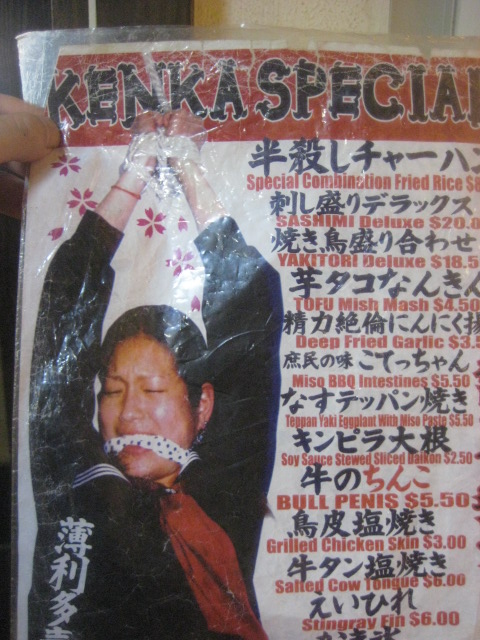 KENKA SPECIAL
半殺しチャーハン
Special Combination Fried Rice $8
刺し盛りデラックス
SASHIMI Deluxe $20.0
焼き鳥盛り合わせ
YAKITORI Deluxe $18.5
芋タコなんきん
TOFU Mish Mash $4.50
精力絶倫にんにく揚
Deep Fried Garlic $3.5
庶民の味 こてっちゃん
Miso BBQ Intestines $5.50
なすテッパン焼き
Teppan Yaki Eggplant With Miso Paste $5.50
キンピラ大根
Soy Sauce Stewed Sliced Daikon $2.50
牛のちんこ
BULL PENIS $5.50
鳥皮塩焼き
Grilled Chicken Skin $3.00
牛タン塩焼き
Salted Cow Tongue $6.00
えいひれ
Stingray Fin $6.00
薄利多